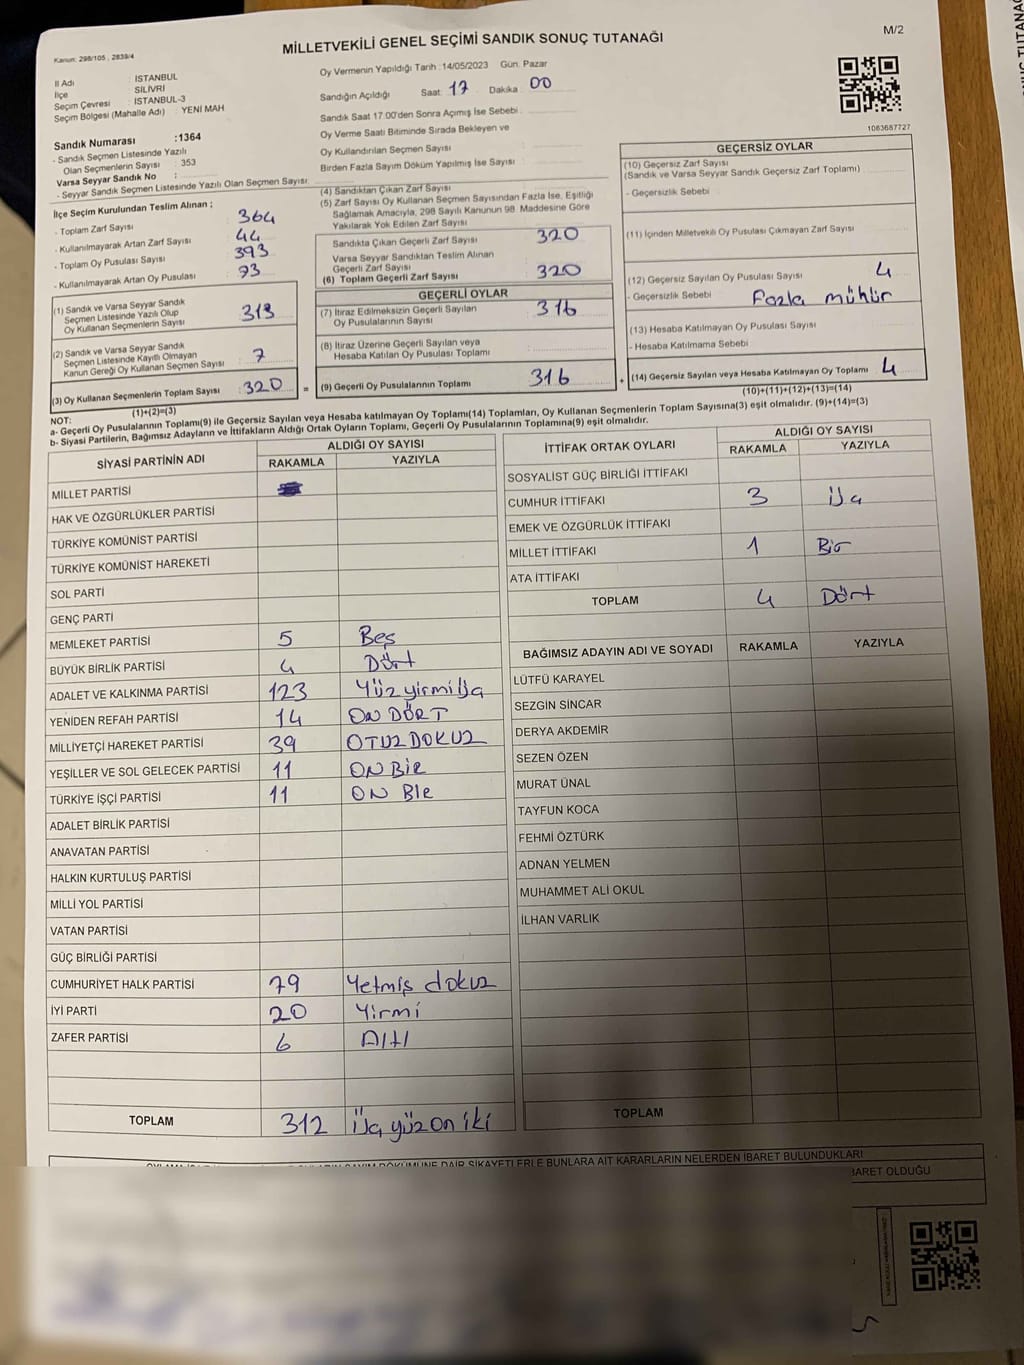 Kanun: 298/105 , 2839/4
MİLLETVEKİLİ GENEL SEÇİMİ SANDIK SONUÇ TUTANAĞI
M/2
İl Adı : İSTANBUL
İlçe : SİLİVRİ
Seçim Çevresi : İSTANBUL-3
Seçim Bölgesi (Mahalle Adı) : YENİ MAH
Sandık Numarası :1364
- Sandık Seçmen Listesinde Yazılı
Olan Seçmenlerin Sayısı : 353
Varsa Seyyar Sandık No :
- Seyyar Sandık Seçmen Listesinde Yazılı Olan Seçmen Sayısı
İlçe Seçim Kurulundan Teslim Alınan ;
- Toplam Zarf Sayısı : 364
- Kullanılmayarak Artan Zarf Sayısı : 44
- Toplam Oy Pusulası Sayısı : 393
- Kullanılmayarak Artan Oy Pusulası : 73
(1) Sandık ve Varsa Seyyar Sandık
Seçmen Listesinde Yazılı Olup
Oy Kullanan Seçmenlerin Sayısı 313
(2) Sandık ve Varsa Seyyar Sandık
Seçmen Listesinde Kayıtlı Olmayan
Kanun Gereği Oy Kullanan Seçmen Sayısı 7
(3) Oy Kullanan Seçmenlerin Toplam Sayısı 320
(1)+(2)=(3)
Oy Vermenin Yapıldığı Tarih :14/05/2023 Gün: Pazar
Sandığın Açıldığı Saat: 17 Dakika : 00
Sandık Saat 17:00'den Sonra Açımış İse Sebebi :
Oy Verme Saati Bitiminde Sırada Bekleyen ve
Oy Kullandırılan Seçmen Sayısı :
Birden Fazla Sayım Döküm Yapılmış İse Sayısı :
(4) Sandıktan Çıkan Zarf Sayısı
(5) Zarf Sayısı Oy Kullanan Seçmen Sayısından Fazla İse, Eşitliği
Sağlamak Amacıyla, 298 Sayılı Kanunun 98. Maddesine Göre
Yakılarak Yok Edilen Zarf Sayısı
Sandıkta Çıkan Geçerli Zarf Sayısı 320
Varsa Seyyar Sandıktan Teslim Alınan
Geçerli Zarf Sayısı
(6) Toplam Geçerli Zarf Sayısı 320
GEÇERLİ OYLAR
(7) İtiraz Edilmeksizin Geçerli Sayılan
Oy Pusulalarının Sayısı : 316
(8) İtiraz Üzerine Geçerli Sayılan veya
Hesaba Katılan Oy Pusulası Toplamı :
= (9) Geçerli Oy Pusulalarının Toplamı 316 +
1063687727
GEÇERSİZ OYLAR
(10) Geçersiz Zarf Sayısı
(Sandık ve Varsa Seyyar Sandık Geçersiz Zarf Toplamı)
- Geçersizlik Sebebi :
(11) İçinden Milletvekili Oy Pusulası Çıkmayan Zarf Sayısı
(12) Geçersiz Sayılan Oy Pusulası Sayısı : 4
- Geçersizlik Sebebi : Fazla mühür
(13) Hesaba Katılmayan Oy Pusulası Sayısı :
- Hesaba Katılmama Sebebi :
(14) Geçersiz Sayılan veya Hesaba Katılmayan Oy Toplamı 4
(10)+(11)+(12)+(13)=(14)
NOT:
a- Geçerli Oy Pusulalarının Toplamı(9) ile Geçersiz Sayılan veya Hesaba katılmayan Oy Toplamı(14) Toplamları, Oy Kullanan Seçmenlerin Toplam Sayısına(3) eşit olmalıdır. (9)+(14)=(3)
b- Siyasi Partilerin, Bağımsız Adayların ve İttifakların Aldığı Ortak Oyların Toplamı, Geçerli Oy Pusulalarının Toplamına(9) eşit olmalıdır.
SİYASİ PARTİNİN ADI
ALDIĞI OY SAYISI
RAKAMLA YAZIYLA
MİLLET PARTİSİ
HAK VE ÖZGÜRLÜKLER PARTİSİ
TÜRKİYE KOMÜNİST PARTİSİ
TÜRKİYE KOMÜNİST HAREKETİ
SOL PARTİ
GENÇ PARTİ
MEMLEKET PARTİSİ 5 Beş
BÜYÜK BİRLİK PARTİSİ 4 Dört
ADALET VE KALKINMA PARTİSİ 123 Yüzyirmi Üç
YENİDEN REFAH PARTİSİ 14 ON DÖRT
MİLLİYETÇİ HAREKET PARTİSİ 39 OTUZ DOKUZ
YEŞİLLER VE SOL GELECEK PARTİSİ 11 ON Bir
TÜRKİYE İŞÇİ PARTİSİ 11 ON BİR
ADALET BİRLİK PARTİSİ
ANAVATAN PARTİSİ
HALKIN KURTULUŞ PARTİSİ
MİLLİ YOL PARTİSİ
VATAN PARTİSİ
GÜÇ BİRLİĞİ PARTİSİ
CUMHURİYET HALK PARTİSİ 79 Yetmiş dokuz
İYİ PARTİ 20 Yirmi
ZAFER PARTİSİ 6 Altı
TOPLAM 312 Üçyüz on iki
İTTİFAK ORTAK OYLARI
ALDIĞI OY SAYISI
RAKAMLA YAZIYLA
SOSYALİST GÜÇ BİRLİĞİ İTTİFAKI
CUMHUR İTTİFAKI 3 Üç
EMEK VE ÖZGÜRLÜK İTTİFAKI
MİLLET İTTİFAKI 1 Bir
ATA İTTİFAKI
TOPLAM 4 Dört
BAĞIMSIZ ADAYIN ADI VE SOYADI RAKAMLA YAZIYLA
LÜTFÜ KARAYEL
SEZGİN SİNCAR
DERYA AKDEMİR
SEZEN ÖZEN
MURAT ÜNAL
TAYFUN KOCA
FEHMİ ÖZTÜRK
ADNAN YELMEN
MUHAMMET ALİ OKUL
İLHAN VARLIK
TOPLAM
DÖKÜMÜNE DAİR ŞİKAYETLERLE BUNLARA AİT KARARLARIN NELERDEN İBARET BULUNDUKLARI
OLDUĞU